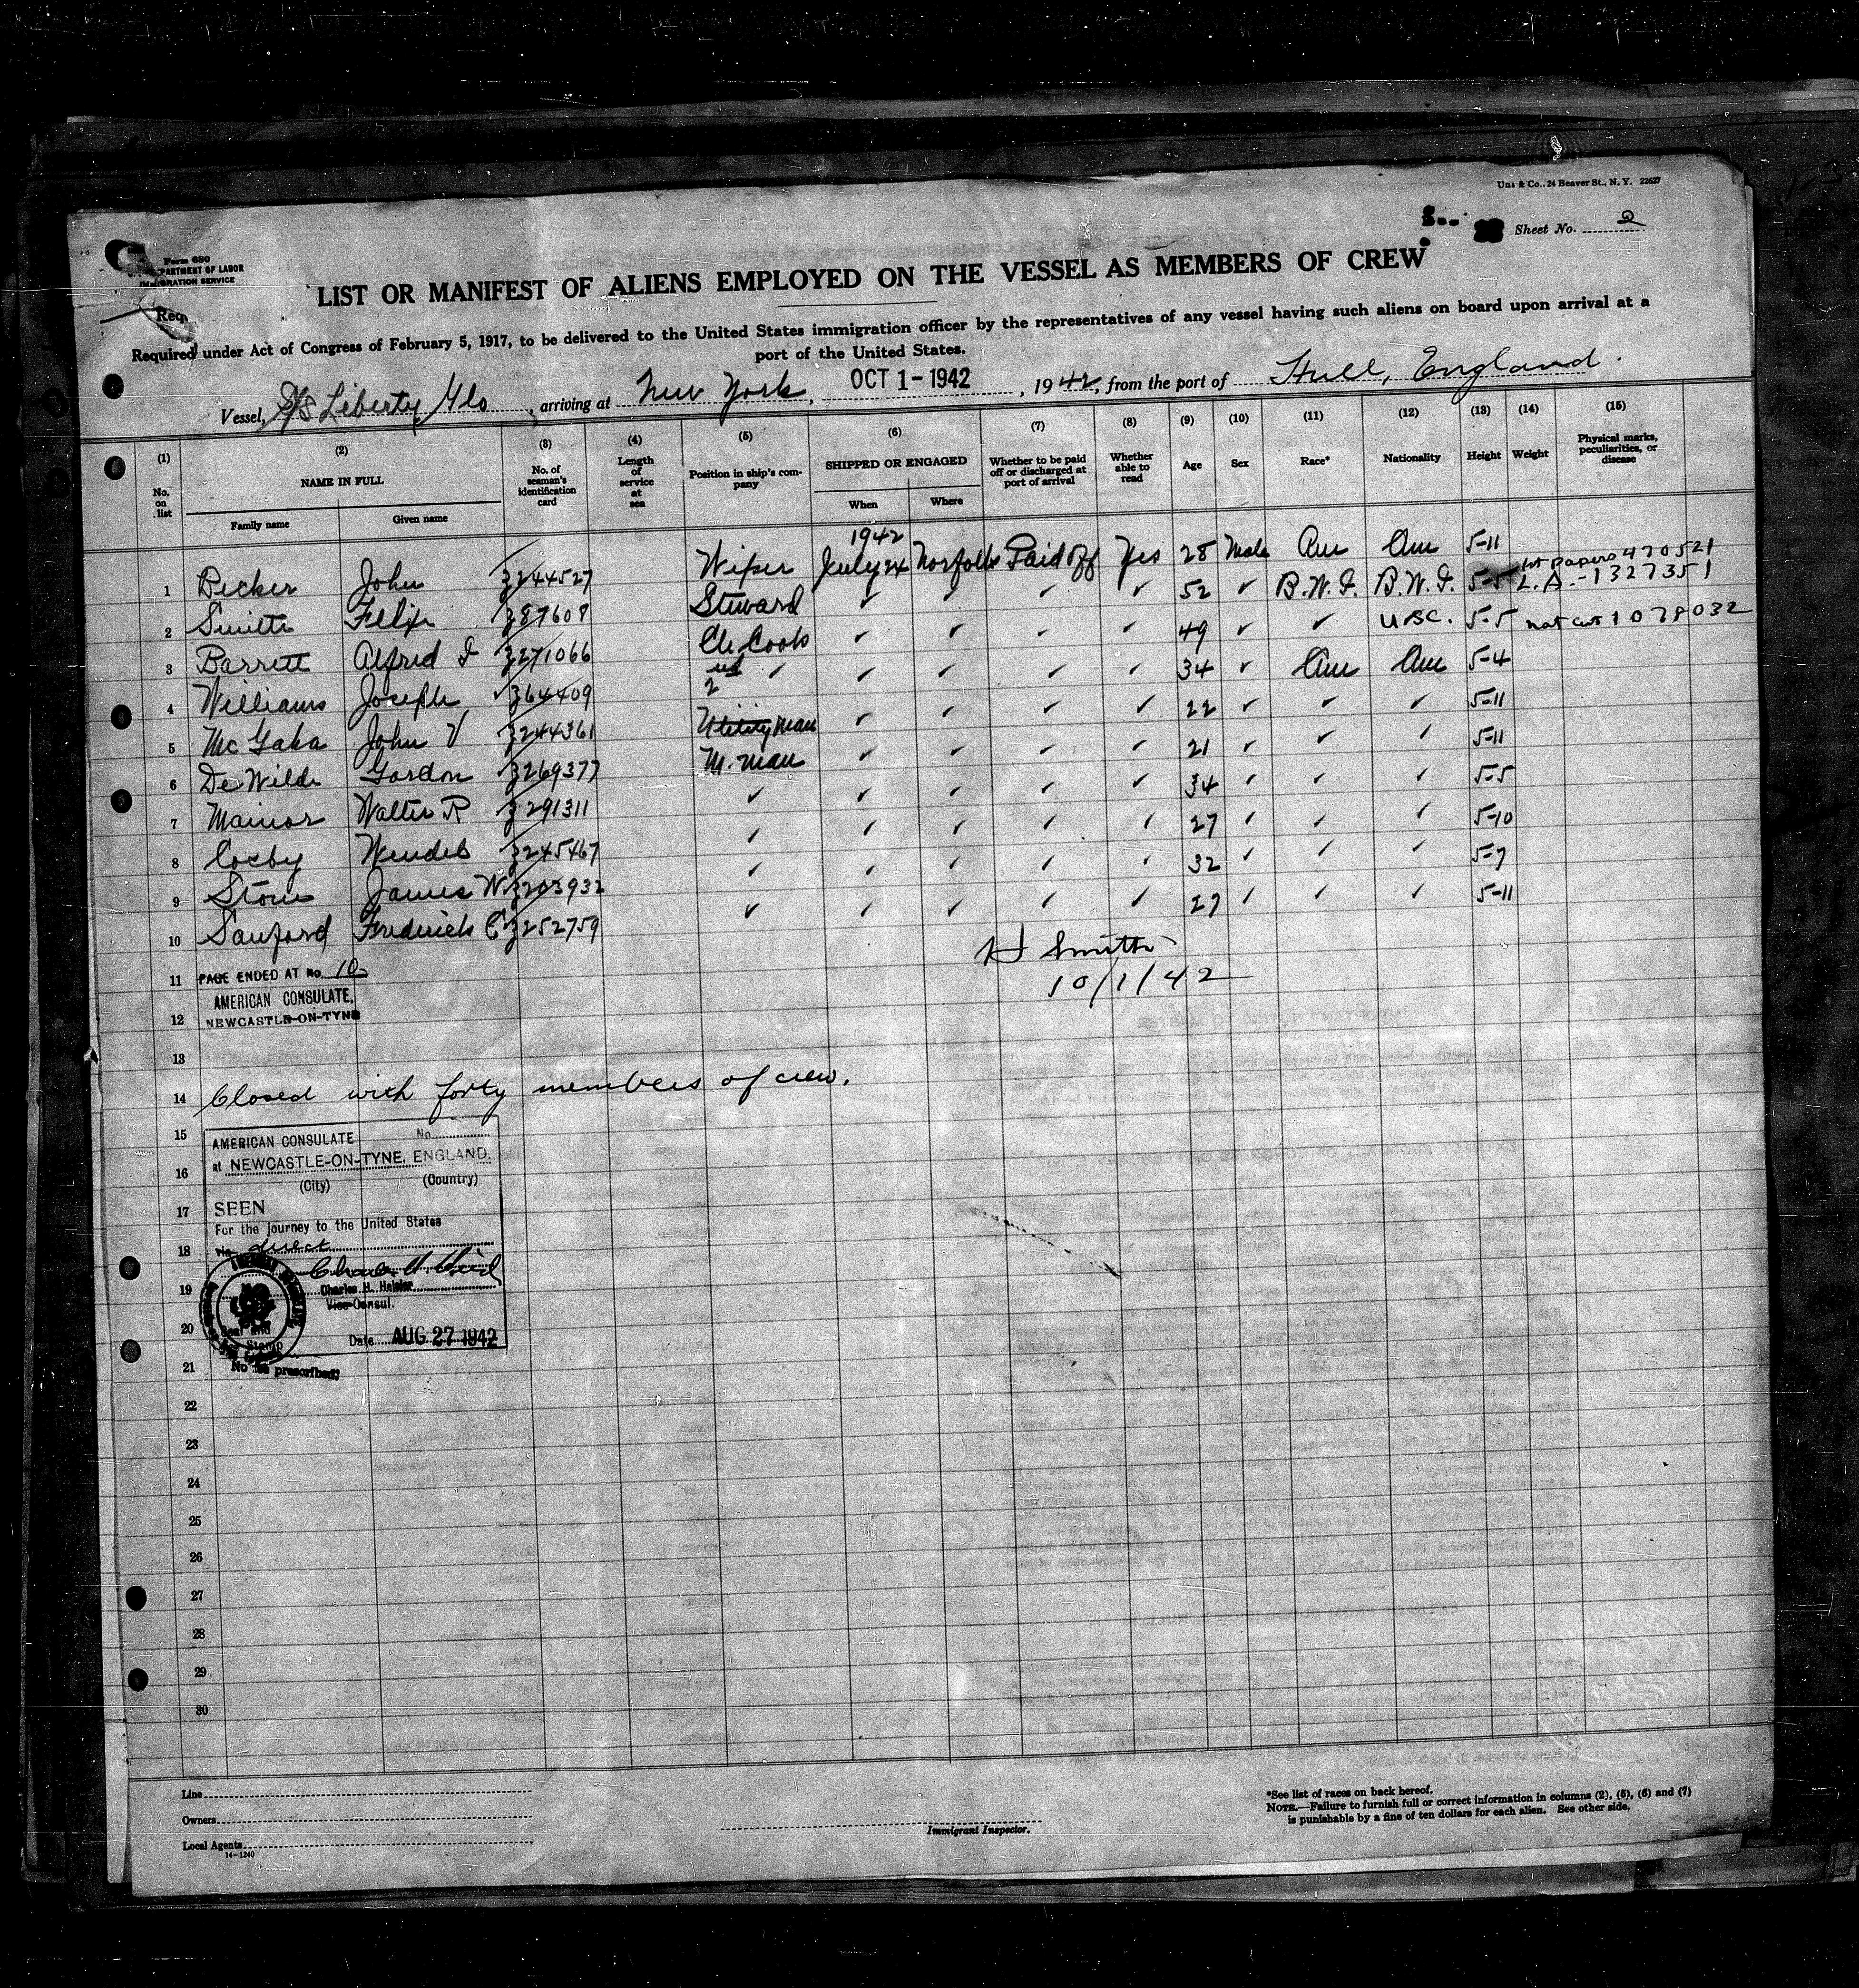 Uni & Co., 24 Beaver St., N. Y. 22627
Sheet No. 2
Form 680
DEPARTMENT OF LABOR
IMMIGRATION SERVICE
LIST OR MANIFEST OF ALIENS EMPLOYED ON THE VESSEL AS MEMBERS OF CREW
Req
Required under Act of Congress of February 5, 1917, to be delivered to the United States immigration officer by the representatives of any vessel having such aliens on board upon arrival at a
port of the United States.
Vessel, S/S Liberty Glo, arriving at New York, OCT 1-1942, 1942, from the port of Hull, England.
(1) (2) (3) (4) (5) (6) (7) (8) (9) (10) (11) (12) (13) (14) (15)
No. on list NAME IN FULL No. of seaman's identification card Length of service at sea Position in ship's company SHIPPED OR ENGAGED Whether to be paid off or discharged at port of arrival Whether able to read Age Sex Race* Nationality Height Weight Physical marks, peculiarities, or disease
Family name Given name When Where
1942
1 Becker John Z244527 Wiper July 24 Norfolk Paid Off Yes 28 Male Am Am 5-11
1st papers 470521
2 Smith Felix Z87607 Steward ✓ ✓ ✓ ✓ 52 ✓ B.W.I. B.W.I. 5-5 L.A.-1327351
3 Barrett Alfred I Z271066 Ch Cook ✓ ✓ ✓ ✓ 49 ✓ ✓ USC. 5-5 nat cert 1078032
4 Williams Joseph Z64409 2nd ✓ ✓ ✓ ✓ ✓ 34 ✓ Am Am 5-4
5 McGaha John V Z244361 Utility man ✓ ✓ ✓ ✓ 22 ✓ ✓ ✓ 5-11
6 De Wilde Gordon Z269377 M. man ✓ ✓ ✓ ✓ 21 ✓ ✓ ✓ 5-11
7 Mainor Walter R Z291311 ✓ ✓ ✓ ✓ ✓ 34 ✓ ✓ ✓ 5-5
8 Cosby Wendel Z245467 ✓ ✓ ✓ ✓ ✓ 27 ✓ ✓ ✓ 5-10
9 Stone James W Z203932 ✓ ✓ ✓ ✓ ✓ 32 ✓ ✓ ✓ 5-7
10 Sanford Frederick C Z252759 ✓ ✓ ✓ ✓ ✓ 27 ✓ ✓ ✓ 5-11
H Smith
10/1/42
11 PAGE ENDED AT No. 10
AMERICAN CONSULATE.
12 NEWCASTLE-ON-TYNE
13
14 Closed with forty members of crew.
15 AMERICAN CONSULATE No.
16 at NEWCASTLE-ON-TYNE, ENGLAND.
(City) (Country)
17 SEEN
For the journey to the United States
18 via direct
19 Charles H. Heisler
Vice Consul.
20 Seal and
Date AUG 27 1942
Stamp
21 No fee prescribed
22
23
24
25
26
27
28
29
30
Line
Owners
Local Agents
14-1240
Immigrant Inspector.
*See list of races on back hereof.
NOTE.—Failure to furnish full or correct information in columns (2), (5), (6) and (7)
is punishable by a fine of ten dollars for each alien. See other side.